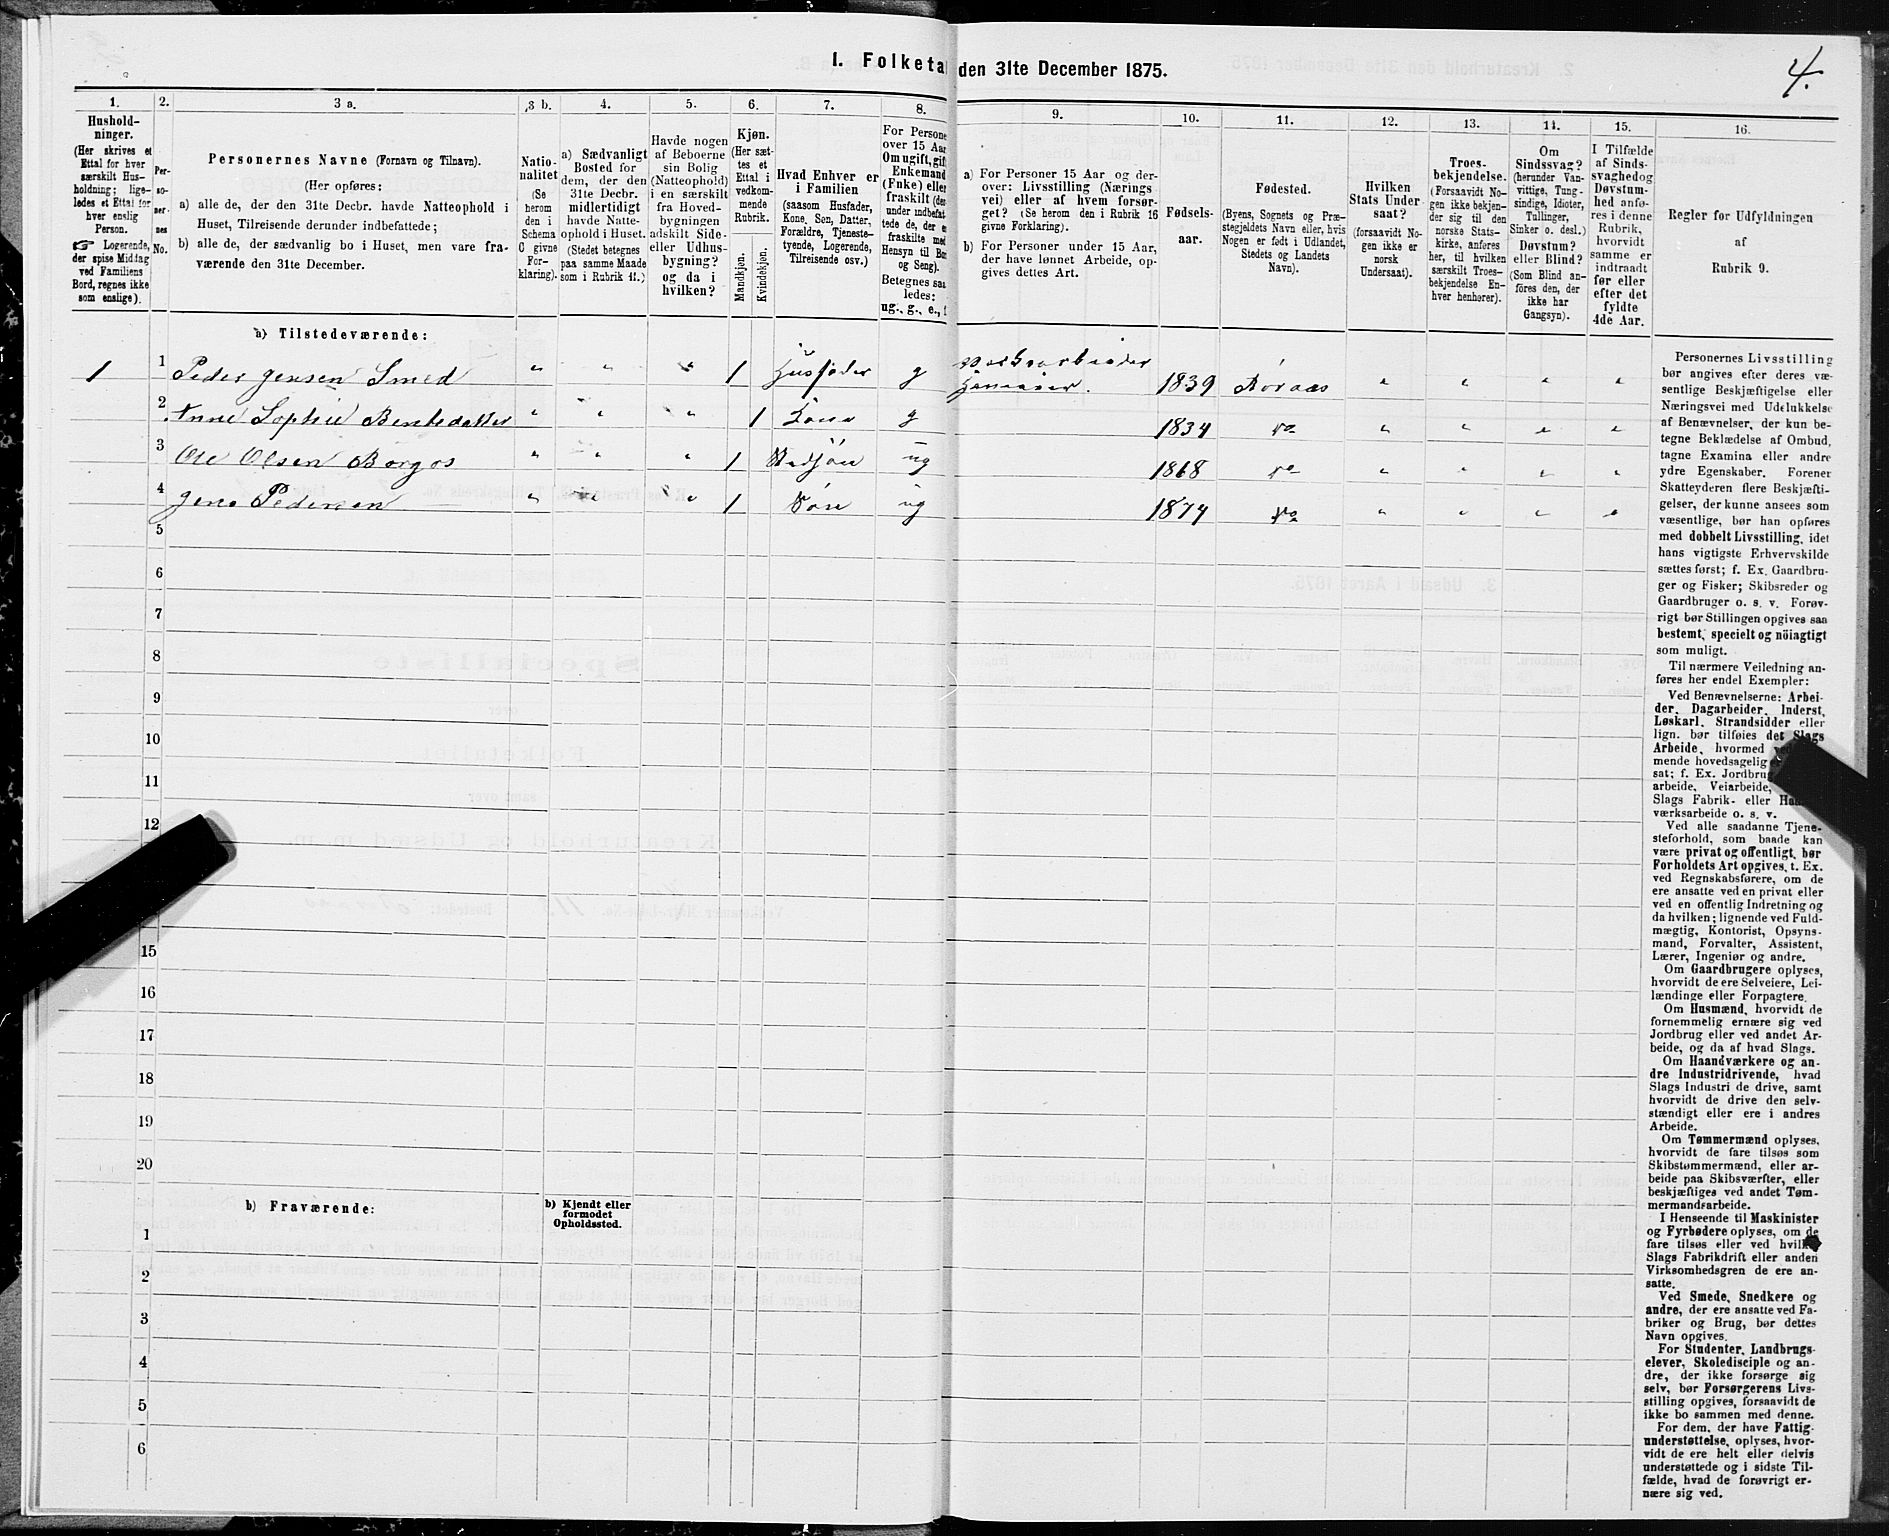 4.
I. Folketal den 31te December 1875.
1.
Hushold-
ninger.
(Her skrives et
Ettal for hver
særskilt Hus-
holdning; lige-
ledes et Ettal for
hver enslig
Person.
☞ Logerende,
der spise Middag
ved Familiens
Bord, regnes ikke
som enslige).
2.
Per-
so-
ner-
nes
No.
3 a.
Personernes Navne (Fornavn og Tilnavn).
(Her opføres:
a) alle de, der den 31te Decbr. havde Natteophold i
Huset, Tilreisende derunder indbefattede;
b) alle de, der sædvanlig bo i Huset, men vare fra-
værende den 31te December.
3 b.
Natio-
nalitet
(Se
herom
den i
Schema
C givne
For-
klaring).
4.
a) Sædvanligt
Bosted for
dem, der den
31te Decbr.
midlertidigt
havde Natte-
ophold i Huset.
(Stedet betegnes
paa samme Maade
som i Rubrik 11.)
5.
Havde nogen
af Beboerne
sin Bolig
(Natteophold)
i en særskilt
fra Hoved-
bygningen
adskilt Side-
eller Udhus-
bygning?
og da i
hvilken?
6.
Kjøn.
(Her sæt-
tes et
Ettal i
vedkom-
mende
Rubrik.
Mandkjøn.
Kvindekjøn.
7.
Hvad Enhver er
i Familien
(saasom Husfader,
Kone, Søn, Datter,
Forældre, Tjeneste-
tyende, Logerende,
Tilreisende osv.)
8.
For Persone
over 15 Aar
Om ugift, gif
Enkemand
(Enke) elle
fraskilt (de
under indbefat
tede de, der e
fraskilte med
Hensyn til Bo
og Seng).
Betegnes saa
ledes:
ug., g., e.,
9.
a) For Personer 15 Aar og der-
over: Livsstilling (Nærings
vei) eller af hvem forsør-
get? (Se herom den i Rubrik 16
givne Forklaring).
b) For Personer under 15 Aar,
der have lønnet Arbeide, op-
gives dettes Art.
10.
Fødsels-
aar.
11.
Fødested.
(Byens, Sognets og Præ-
stegjeldets Navn eller, hvis
Nogen er født i Udlandet,
Stedets og Landets
Navn).
12.
Hvilken
Stats Under
saat?
(forsaavidt No-
gen ikke er
norsk
Undersaat).
13.
Troes-
bekjendelse.
(Forsaavidt No-
gen ikke bekjen-
der sig til den
norske Stats-
kirke, anføres
her, til hvilken
særskilt Troes-
bekjendelse En-
hver henhører).
14.
Om
Sindssvag?
(herunder Van-
vittige, Tung-
sindige, Idioter,
Tullinger,
Sinker o. desl.)
Døvstum?
eller Blind?
(Som Blind an-
føres den, der
ikke har
Gangsyn).
15.
I Tilfælde
af Sinds-
svaghed og
Døvstum-
hed anfø-
res i denne
Rubrik,
hvorvidt
samme er
indtraadt
før eller
efter det
fyldte
4de Aar.
16.
Regler for Udfyldningen
af
Rubrik 9.
a) Tilstedeværende:
1 1 Peder Jensen Smed " " " 1 Husfader g 1839 Røraas " " " "
2 Anne Sophie Bentsdatter " " " 1 Kone g 1834 do " " " "
3 Ole Olsen Borgos " " " 1 Stedsøn ug 1868 do " " " "
4 Jens Pedersen " " " 1 Søn ug 1874 do " " " "
5
6
7
8
9
10
11
12
15
16
17
18
19
20
b) Fraværende:
b) Kjendt eller
formodet
Opholdssted.
1
2
3
4
5
6
Personernes Livsstilling
bør angives efter deres væ-
sentlige Beskjæftigelse eller
Næringsvei med Udelukkelse
af Benævnelser, der kun be-
tegne Beklædelse af Ombud,
tagne Examina eller andre
ydre Egenskaber. Forener
Skatteyderen flere Beskjæfti-
gelser, der kunne ansees som
væsentlige, bør han opføres
med dobbelt Livsstilling, idet
hans vigtigste Erhvervskilde
sættes først; f. Ex. Gaardbru-
ger og Fisker; Skibsreder og
Gaardbruger o. s. v. Forøv-
rigt bør Stillingen opgives saa
bestemt, specielt og nöiagtigt
som muligt.
Til nærmere Veiledning an-
føres her endel Exempler:
Ved Benævnelserne: Arbei-
der, Dagarbeider, Inderst,
Løskarl, Strandsidder eller
lign. bør tilføies det Slags
Arbeide, hvormed ved
mende hovedsagelig
sat; f. Ex. Jordbrug
arbeide, Veiarbeide,
Slags Fabrik- eller Haand
værksarbeide o. s. v.
Ved alle saadanne Tjene-
steforhold, som baade kan
være privat og offentligt, bør
Forholdets Art opgives, t. Ex.
ved Regnskabsførere, om de
ere ansatte ved en privat eller
ved en offentlig Indretning og
da hvilken; lignende ved Fuld-
mægtig, Kontorist, Opsyns-
mand, Forvalter, Assistent,
Lærer, Ingeniør og andre.
Om Gaardbrugere oplyses,
hvorvidt de ere Selveiere, Lei-
lændinge eller Forpagtere.
Om Husmænd, hvorvidt de
fornemmelig ernære sig ved
Jordbrug eller ved andet Ar-
beide, og da af hvad Slags.
Om Haandværkere og an-
dre Industridrivende, hvad
Slags Industri de drive, samt
hvorvidt de drive den selv-
stændigt eller ere i andres
Arbeide.
Om Tømmermænd oplyses,
hvorvidt de fare tilsøs som
Skibstømmermænd, eller ar-
beide paa Skibsværfter, eller
beskjæftiges ved andet Tøm-
mermandsarbeide.
I Henseende til Maskinister
og Fyrbødere oplyses, om de
fare tilsøs eller ved hvilke
Slags Fabrikdrift eller anden
Virksomhedsgren de ere an-
satte.
Ved Smede, Snedkere og
andre, der ere ansatte ved Fa-
briker og Brug, bør dettes
Navn opgives.
For Studenter, Landbrugs-
elever, Skoledisciple og an-
dre, der ikke forsørge sig
selv, bør Forsørgerens Livs-
stilling opgives, forsaavidt de
ikke bo sammen med denne.
For dem, der have Fattig-
understøttelse, oplyses, hvor-
vidt de ere helt eller delvis
understøttede og i sidste Til-
fælde, hvad de forøvrigt er-
nære sig ved.